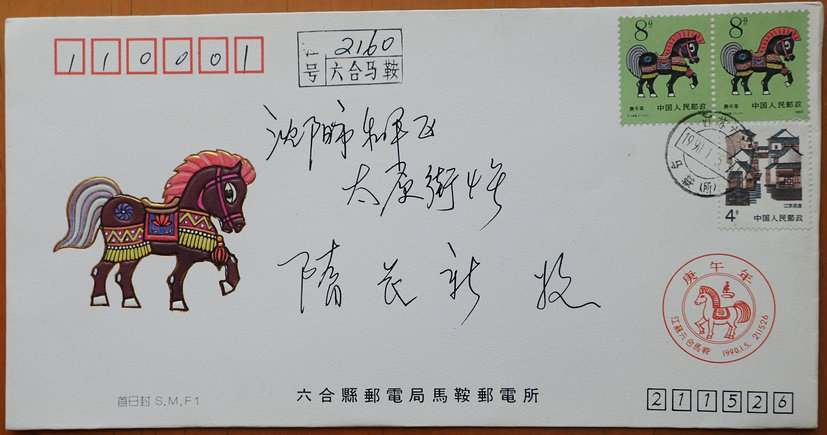 110001
江 2160
号 六合马鞍
8分
庚午年
中国人民邮政
8分
庚午年
中国人民邮政
4分
江苏民居
中国人民邮政
1990.1.5
马鞍(所)
沈阳市和平区
太原街4号
隋 收
庚午年
馬
江蘇六合馬鞍 1990.1.5. 211526
首日封 S.M.F1
六合縣郵電局馬鞍郵電所
211526